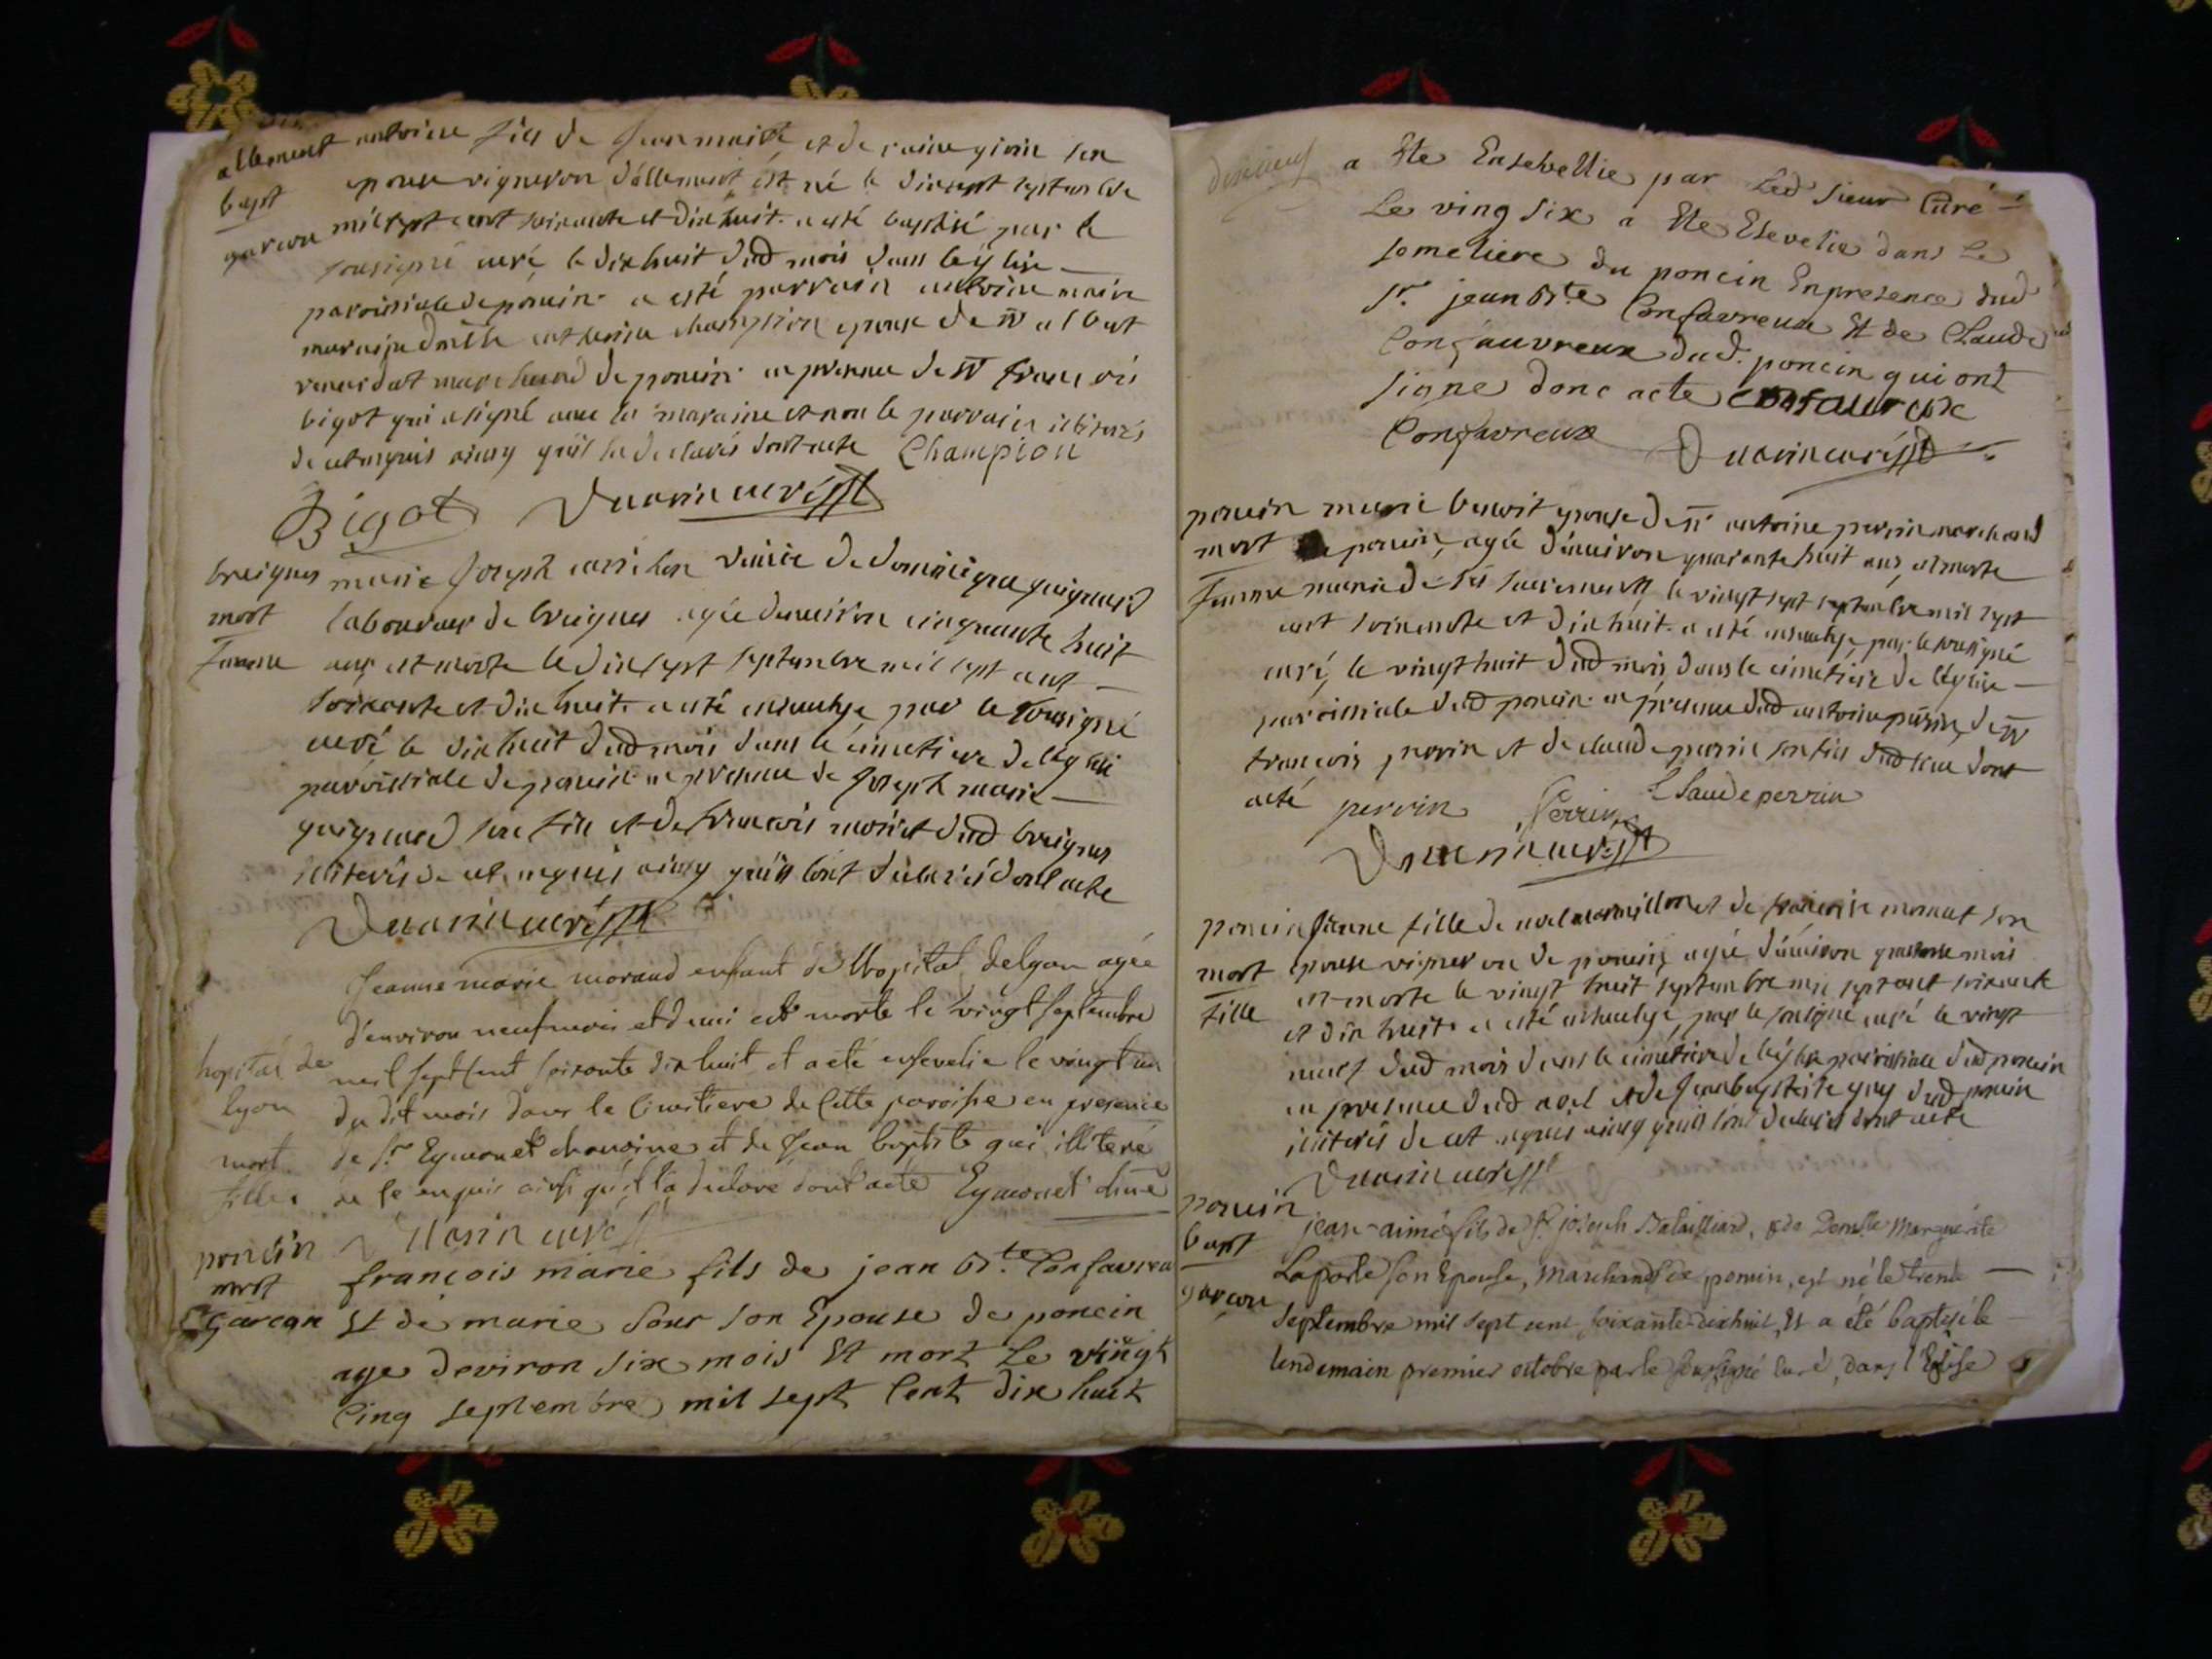 allement antoine fils de Jean maitre et de raine girin son
bapt epouse vigneron d'allement est né le dix sept septembre
garcon mil sept cent soixante et dix huit a esté baptisé par le
sousigné curé le dix huit dud mois dans leglise
paroissiale de poncin a esté parrain antoine maire
maraine dlle catherine champion epouse de sr albert
marchand de poncin en presence de sr francois
bigot qui a signé avec la maraine et non le parrain illiteré
de ce enquis ainsy qu'il la declaré dont acte Champion
Bigot Duarin curé sst
breignes marie Joseph veuve de dominique guignard
mort laboureur de breignes agée denviron cinquante huit
femme ans est morte le dix sept septembre mil sept cent
soixante et dix huit a esté ensevelye par le sousigné
curé le dix huit dud mois dans le cimetiere de leglise
paroissiale de poncin en presence de Joseph marie
guignard son fils et de francois moiret dud breignes
illiterés de ce enquis ainsy qu'ils lont declarés dont acte
Duarin curé sst
Jeanne marie morand enfant de l'hopital de lyon agée
d'environ neuf mois et demi est morte le vingt septembre
hopital de mil sept cent soixante dix huit et a eté ensevelie le vingt un
lyon du dit mois dans le cimetiere de cette paroisse en presence
mort de Sr Eymonet chanoine et de Jean baptiste qui illiteré
fille de ce enquis ainsi qu'il la declare dont acte Eymonet chne
Duarin curé sst
poncin
mort francois marie fils de jean bte Confavreu
Garcon Et de marie son Epouse de poncin
age deviron six mois Et mort Le vingt
Cinq septembre mil sept Cent dix huit
dixneuf a Ete Ensevellie par Led sieur Curé
Le ving six a Ete Esevelie dans Le
semetiere du poncin En presence dud
sr jean bte Confavreux Et de Claude
Confauvreux dud. poncin qui ont
signe donc acte Confaureux
Confavreux Duarin curé sst
poncin marie benoit epouse de sr antoine perrin marchand
mort de poncin, agée d'environ quarante huit ans, est morte
femme munie de ses sacremens le vingt sept septembre mil sept
cent soixante et dix huit a esté ensevelye par le sousigné
curé, le vingt huit dud mois, dans le cimetiere de l'eglise
paroissiale dud poncin en presence dud antoine perrin, de sr
francois perrin et de claude perrin son fils dud lieu dont
acte perrin Perrin Claude perrin
Duarin curé sst
poncin Jeanne fille de noel marmillon et de francoise monnet son
mort epouse vigneron de poncin, agée d'environ quatorze mois
fille est morte le vingt huit septembre mil sept cent soixante
et dix huit a esté ensevelye, par le sousigné curé le vingt
neuf dud mois dans le cimetiere de l'eglise paroissiale dud poncin
en presence dud noel et de Jean baptiste guy dud poncin
illiterés de ce enquis ainsy qu'ils lont declarés dont acte
Duarin curé sst
poncin
bapt jean-aimé fils de Sr joseph Bataillard, & de Demlle Marguerite
garcon Laporte son Epouse, Marchands de poncin, est né le trente
septembre mil sept cent soixante-dixhuit, Et a été baptisé le
lendemain premier octobre par le soussigné curé, dans l'Eglise